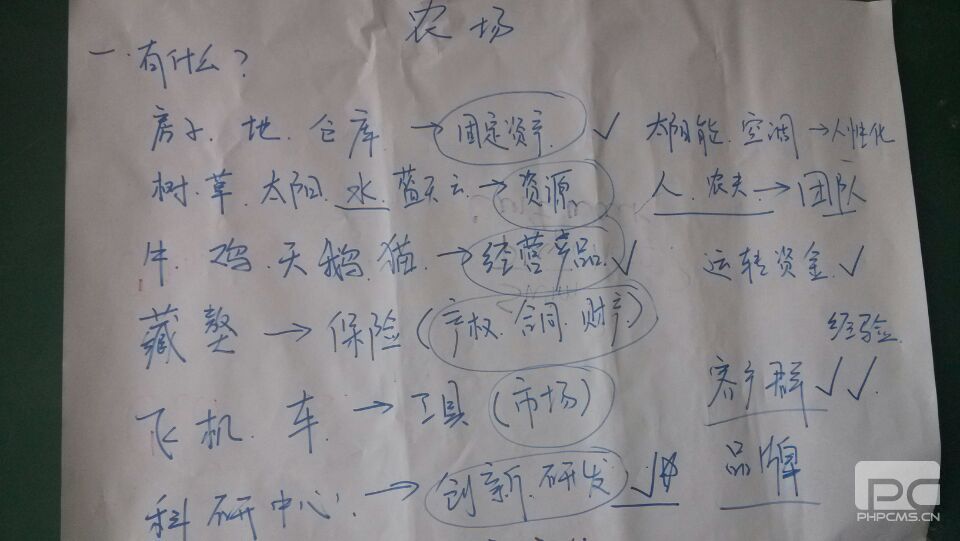 农场
一.有什么?
房子.地.仓库→固定资产 √ 太阳能.空调→人性化
树.草.太阳.水.蓝天云→资源 人.农夫→团队
牛.鸡.天鹅.猫.→经营产品√ 运转资金.√
藏獒→保险(产权.合同.财产) 经验
飞机.车.→工具(市场) 客户群√√.
科研中心:→创新.研发 √ 品牌
PC
PHPCMS.CN